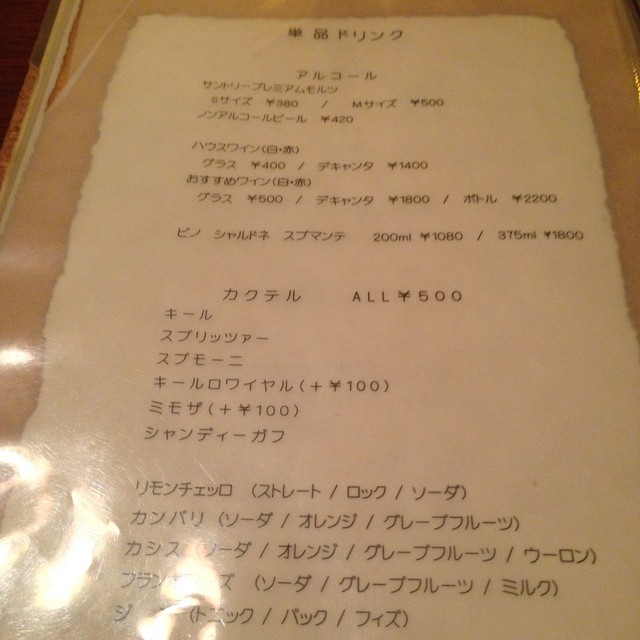 単品ドリンク
アルコール
サントリープレミアムモルツ
Sサイズ ¥380 / Mサイズ ¥500
ノンアルコールビール ¥420
ハウスワイン(白・赤)
グラス ¥400 / デキャンタ ¥1400
おすすめワイン(白・赤)
グラス ¥500 / デキャンタ ¥1800 / ボトル ¥2200
ピノ シャルドネ スプマンテ 200ml ¥1080 / 375ml ¥1800
カクテル ALL¥500
キール
スプリッツァー
スプモーニ
キールロワイヤル(+¥100)
ミモザ(+¥100)
シャンディーガフ
リモンチェッロ (ストレート / ロック / ソーダ)
カンパリ (ソーダ / オレンジ / グレープフルーツ)
カシス (ソーダ / オレンジ / グレープフルーツ / ウーロン)
(ソーダ / グレープフルーツ / ミルク)
(トニック / バック / フィズ)